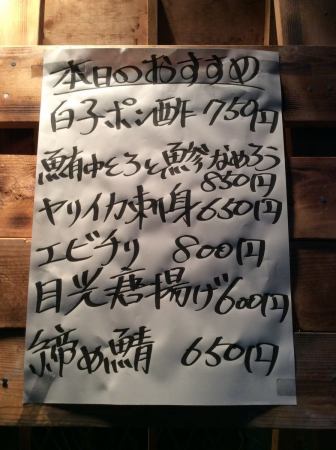 本日のおすすめ
白子ポン酢 759円
鮪中とろと鯵なめろう
850円
ヤリイカ刺身 650円
エビチリ 800円
目光唐揚げ 600円
締め鯖 650円